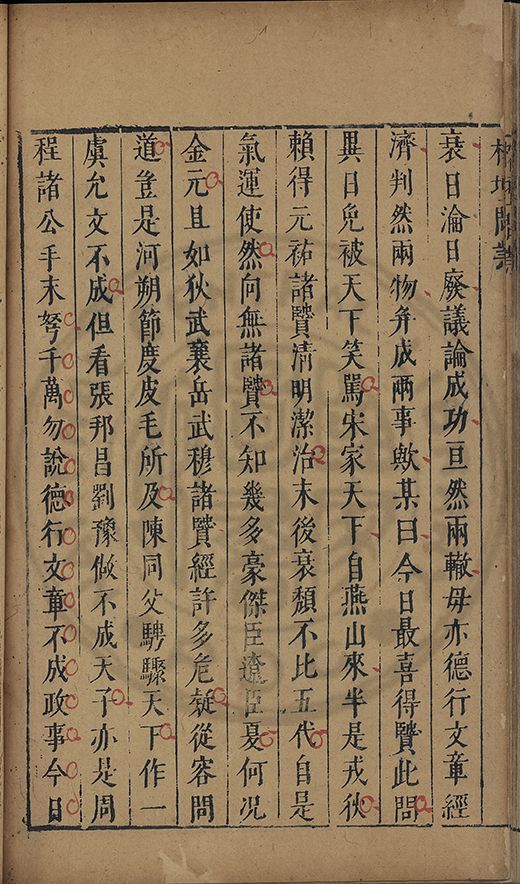 榕壇問業
衰日淪日廢議論成功亘然兩轍毋亦德行文章經
濟判然兩物弁成兩事歟某曰今日最喜得賢此問
異日免被天下笑罵宋家天下自燕山來半是戎狄
賴得元祐諸賢清明潔治末後衰頹不比五代自是
氣運使然向無諸賢不知幾多豪傑臣遼臣夏何况
金元且如狄武襄岳武穆諸賢經許多危疑從容問
道豈是河朔節度皮毛所及陳同父騁驟天下作一
虞允文不成但看張邦昌劉豫做不成天子亦是周
程諸公手末弩千萬勿說德行文章不成政事今日